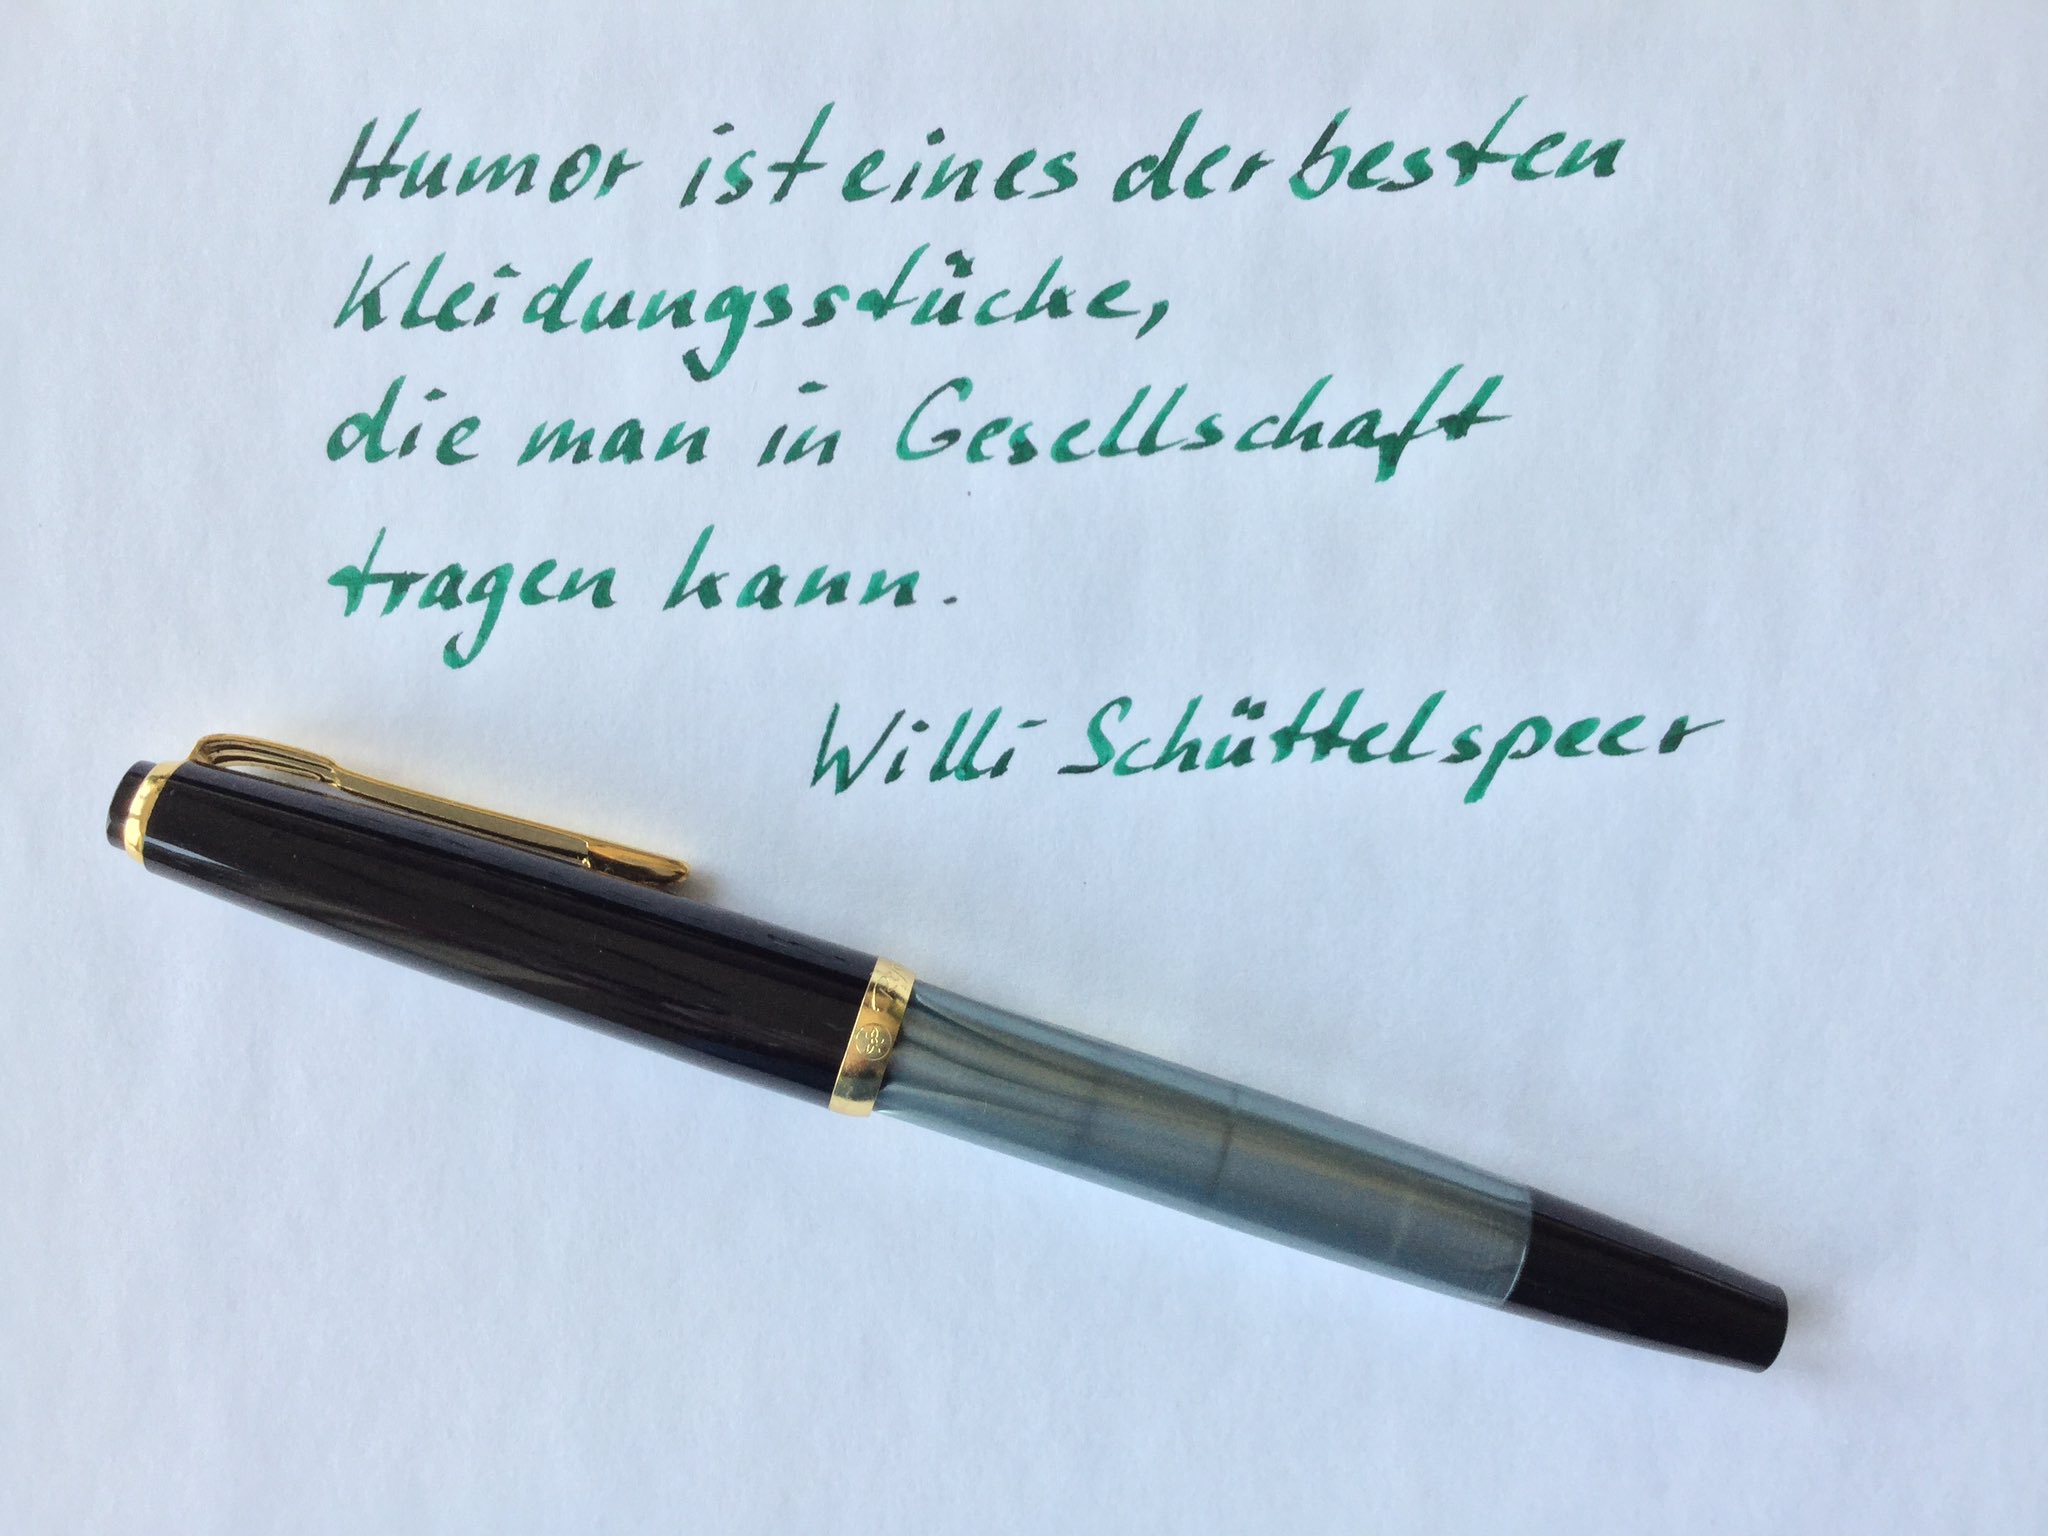 Humor ist eines der besten
Kleidungsstücke,
die man in Gesellschaft
tragen kann.
Willi Schüttelspeer